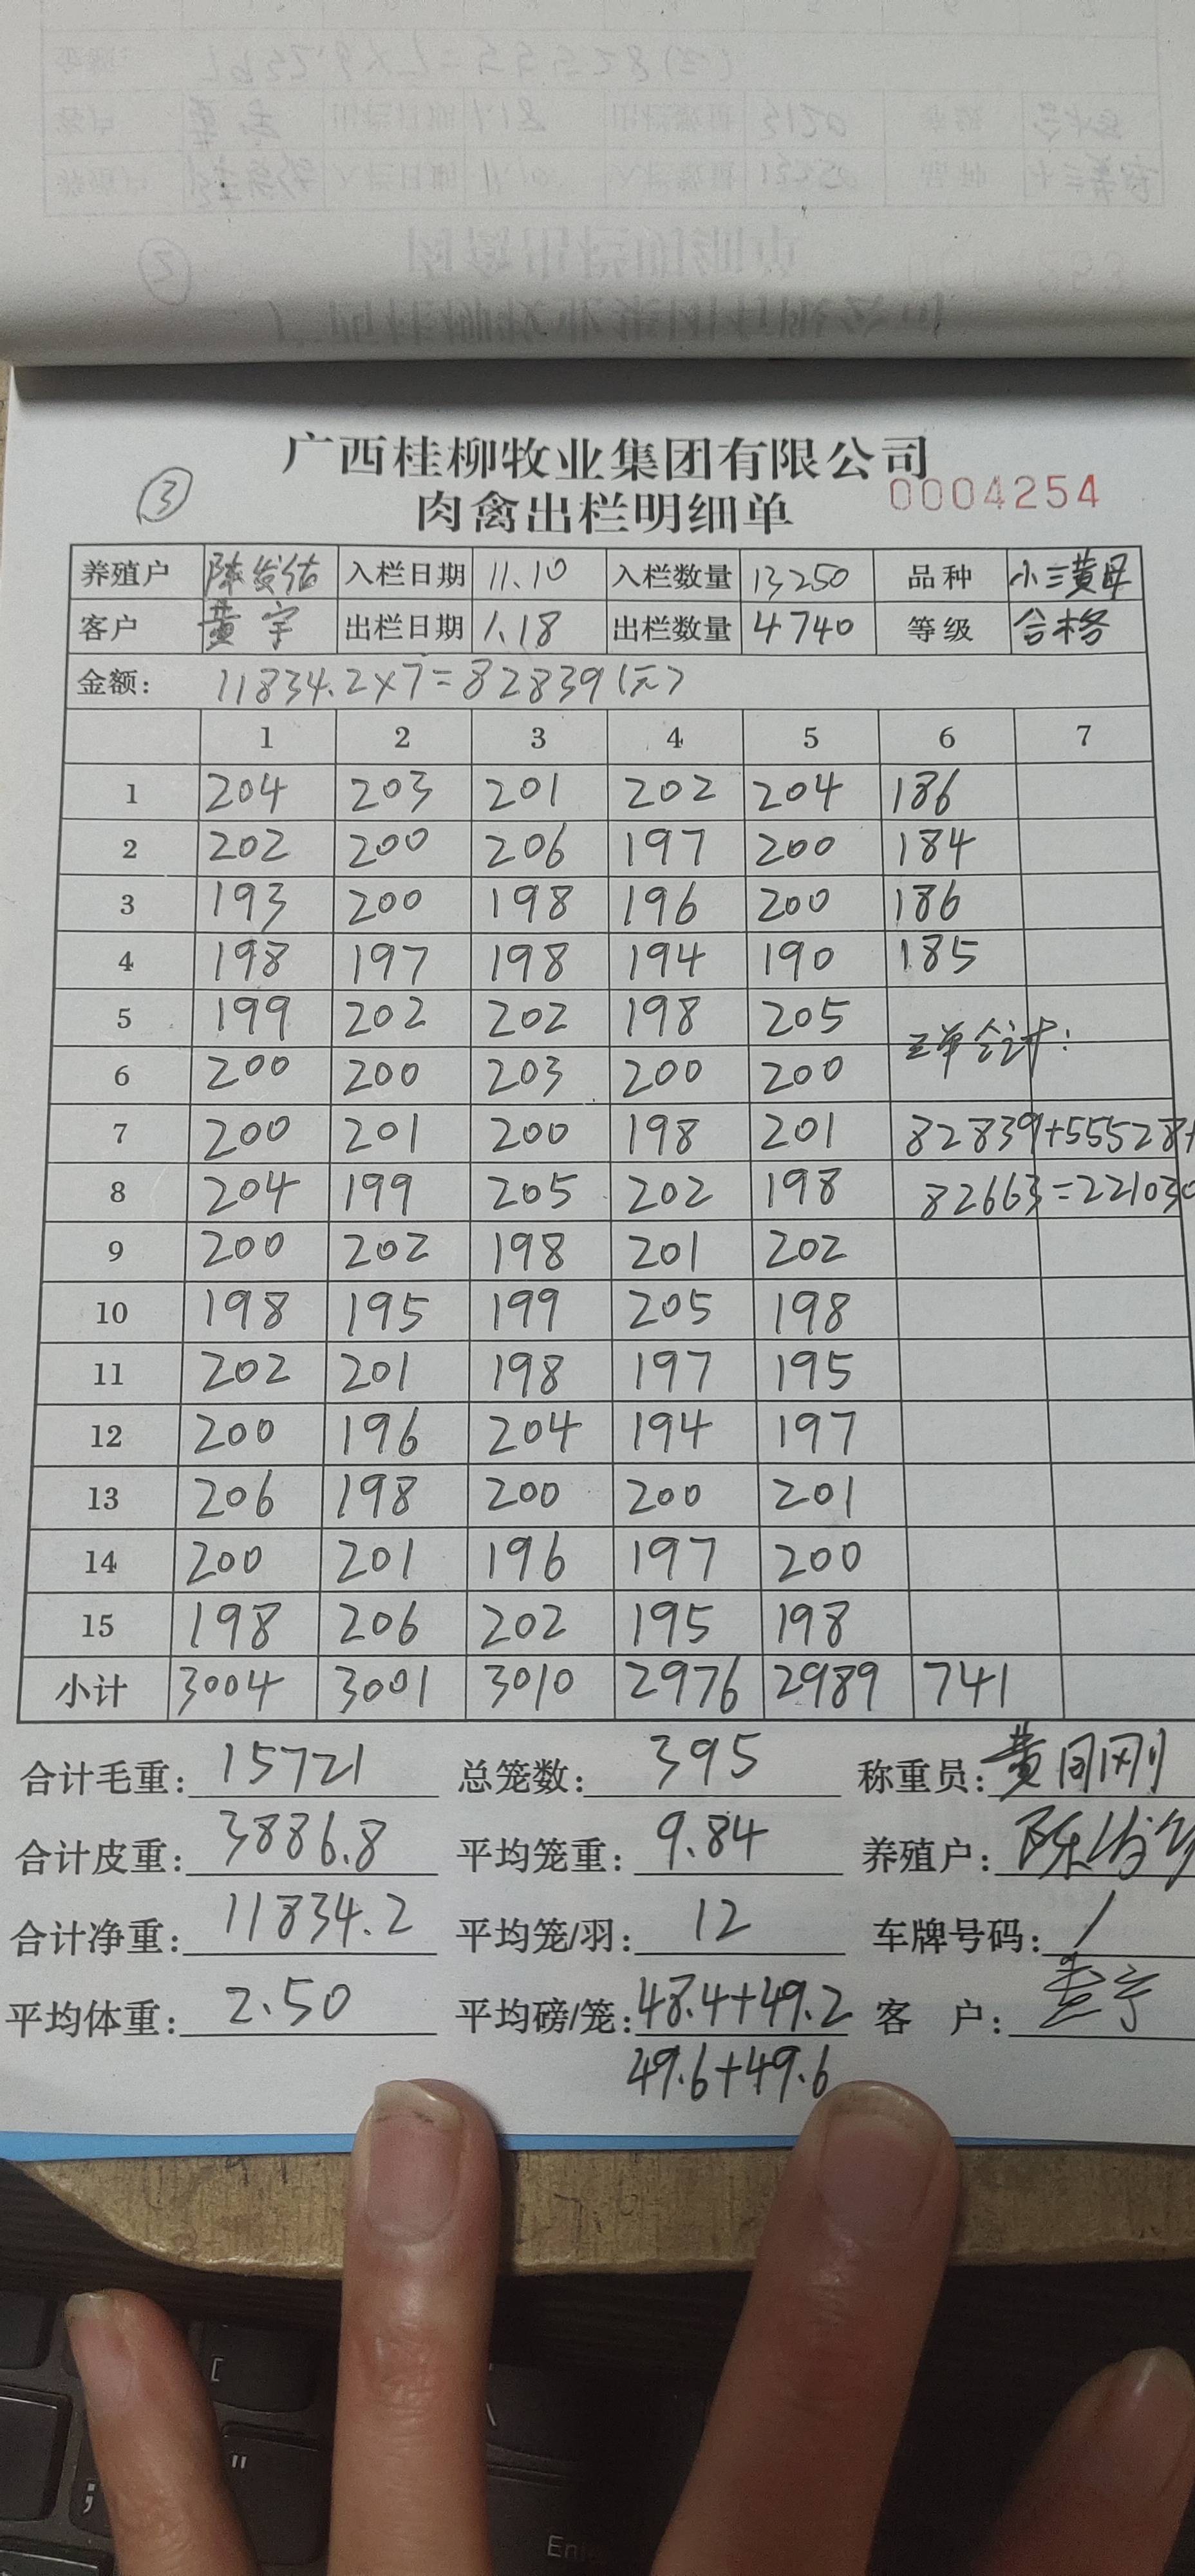 广西桂柳牧业集团有限公司
③ 肉禽出栏明细单 0004254
养殖户 陈发佑 入栏日期 11.10 入栏数量 13250 品种 小三黄母
客户 黄宇 出栏日期 1.18 出栏数量 4740 等级 合格
金额: 11834.2×7=82839(元)
1 2 3 4 5 6 7
1 204 203 201 202 204 186
2 202 200 206 197 200 184
3 193 200 198 196 200 186
4 198 197 198 194 190 185
5 199 202 202 198 205
三单合计:
6 200 200 203 200 200
7 200 201 200 198 201 82839+55528+
8 204 199 205 202 198 82663=221030
9 200 202 198 201 202
10 198 195 199 205 198
11 202 201 198 197 195
12 200 196 204 194 197
13 206 198 200 200 201
14 200 201 196 197 200
15 198 206 202 195 198
小计 3004 3001 3010 2976 2989 741
合计毛重: 15721 总笼数: 395 称重员: 黄同刚
合计皮重: 3886.8 平均笼重: 9.84 养殖户: 陈
合计净重: 11834.2 平均笼/羽: 12 车牌号码: /
平均体重: 2.50 平均磅/笼: 48.4+49.2 客 户: 黄宇
49.6+49.6
[
"
;
Ent